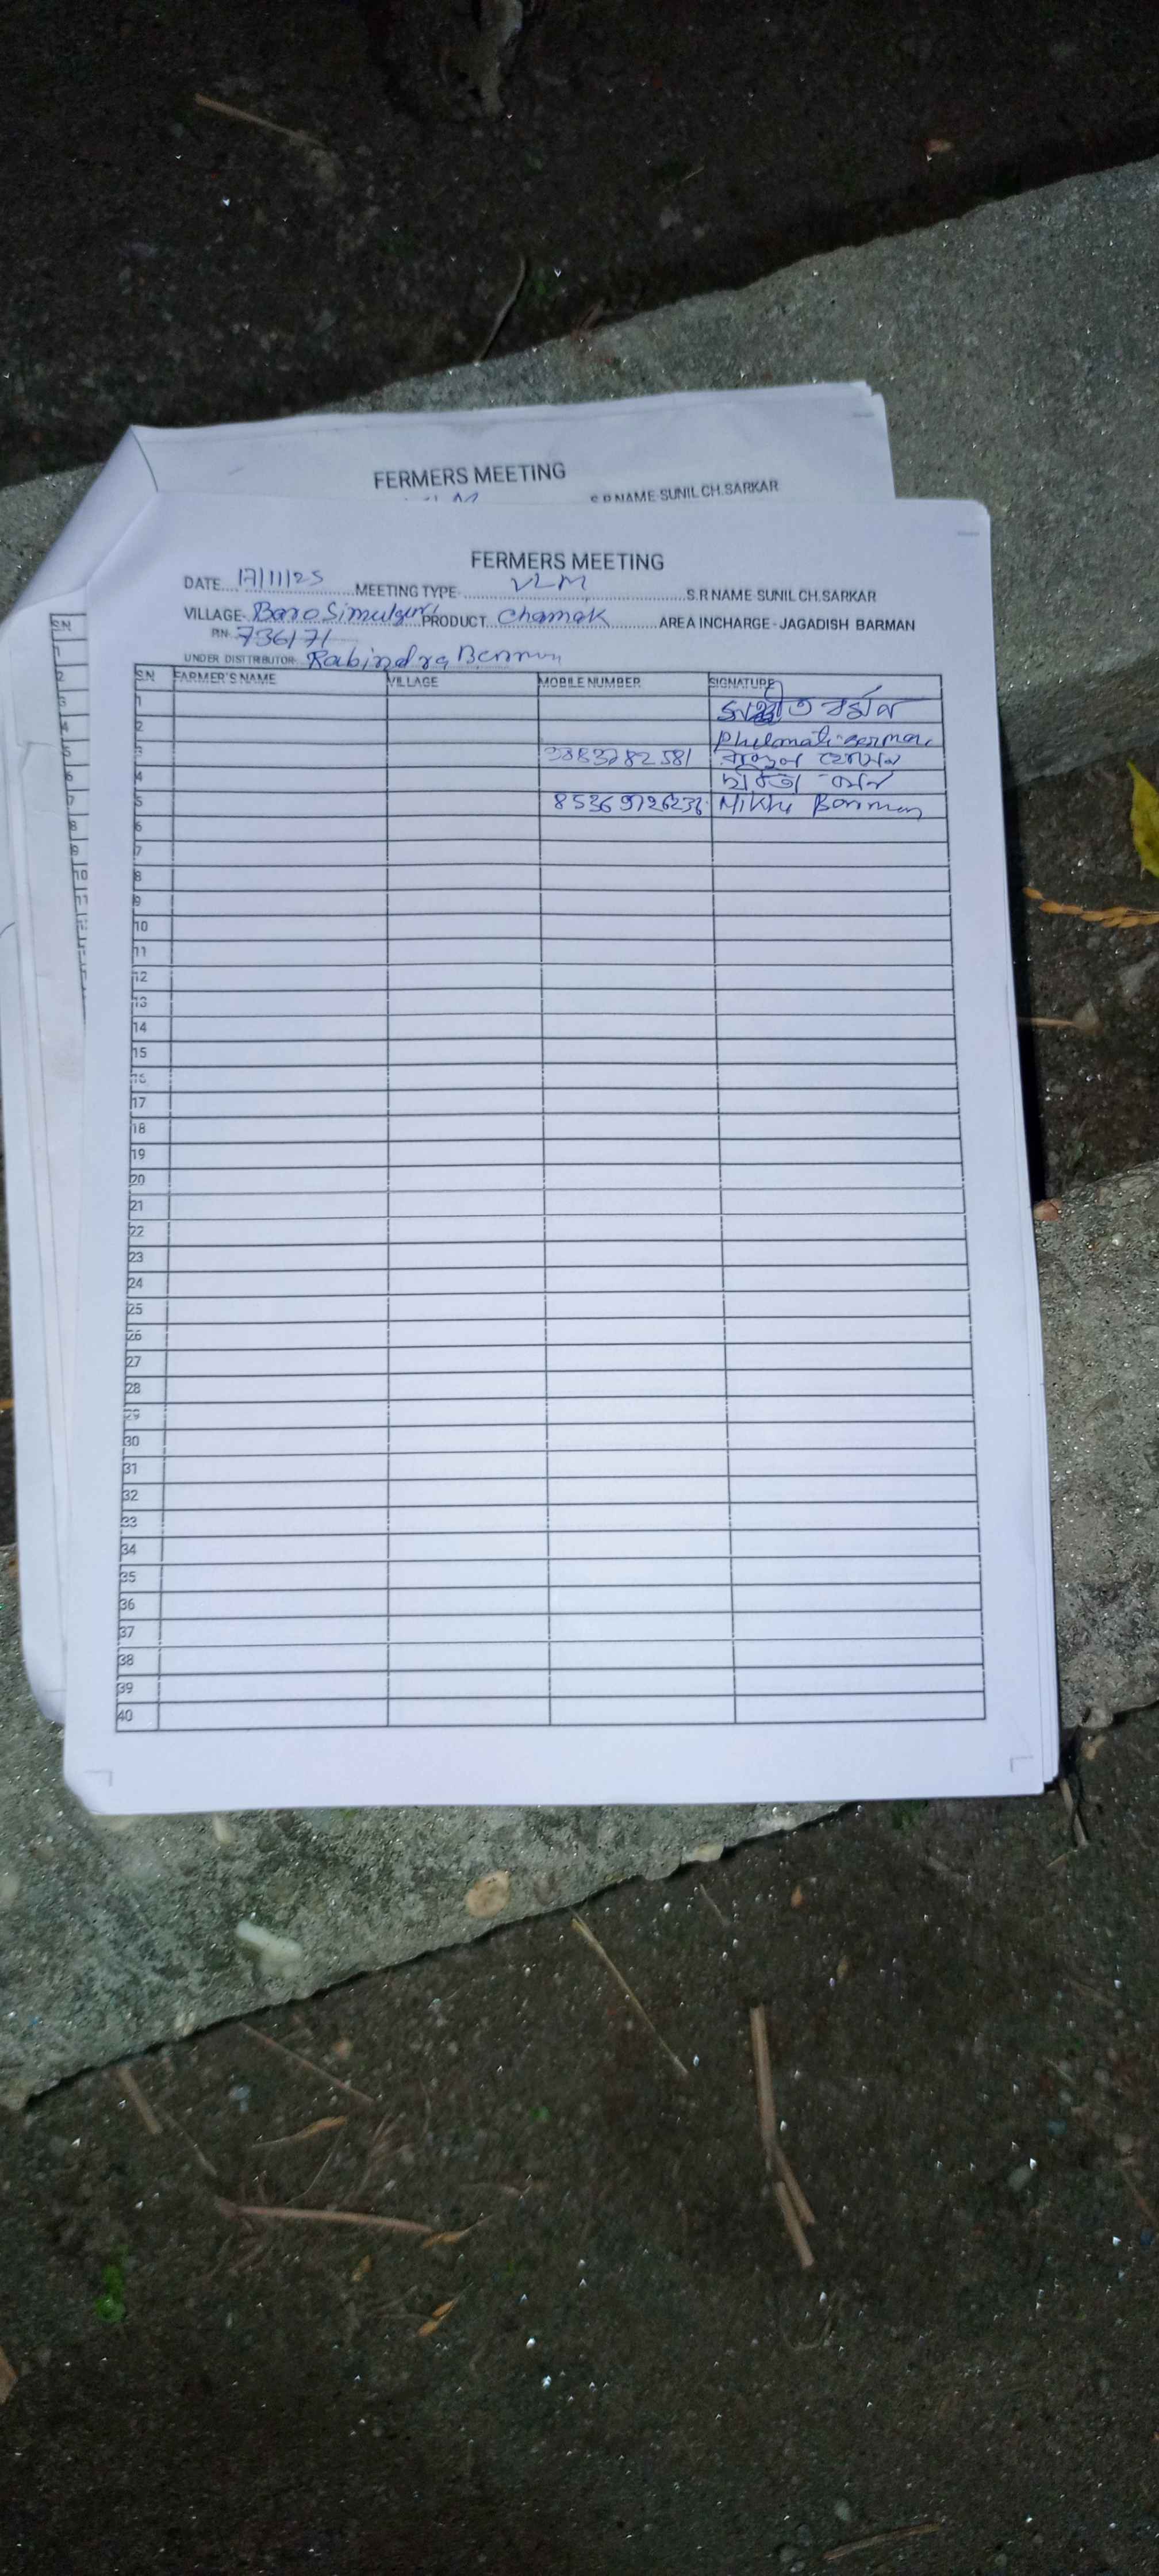 FERMERS MEETING
S.R NAME SUNIL CH.SARKAR
FERMERS MEETING
DATE 17/11/25 MEETING TYPE VLM S.R NAME SUNIL CH.SARKAR
VILLAGE- Baro Simulguri PRODUCT Chamak AREA INCHARGE - JAGADISH BARMAN
PIN 736171
UNDER DISTTRIBUTOR Rabindra Barman
SN FARMER'S NAME VILLAGE MOBILE NUMBER SIGNATURE
1 বর্মন
2 Phulomati Barman
3
4
5 Barman
6
7
8
9
10
11
12
13
14
15
16
17
18
19
20
21
22
23
24
25
26
27
28
29
30
31
32
33
34
35
36
37
38
39
40
SN
1
2
3
4
5
6
7
8
9
10
11